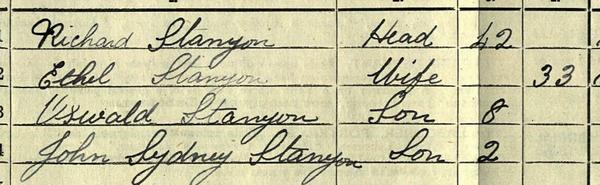 Richard Stanyon Head 42
Ethel Stanyon Wife 33
Oswald Stanyon Son 8
John Sydney Stanyon Son 2